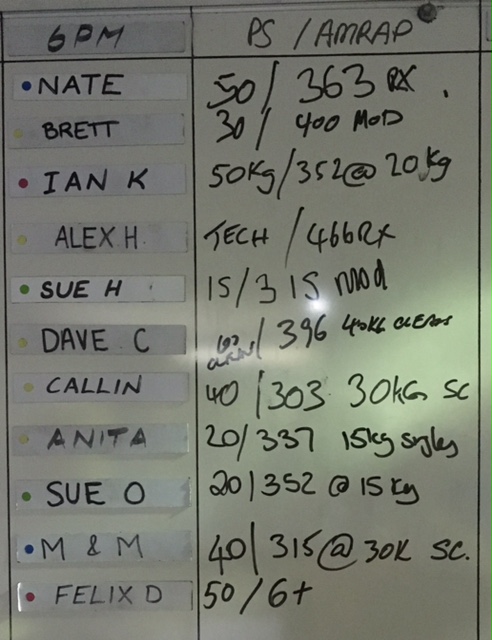 6PM PS / AMRAP
NATE 50 / 363 RX .
BRETT 30 / 400 MOD
IAN K 50Kg / 352 @ 20Kg
ALEX H. TECH / 466 RX
SUE H 15 / 315 mod
DAVE C / 396 40KG CLEANS
CALLIN 40 / 303 30KG SC
ANITA 20 / 337 15kg singles
SUE O 20 / 352 @ 15 Kg
M & M 40 / 315 @ 30K SC.
FELIX D 50 / 6+